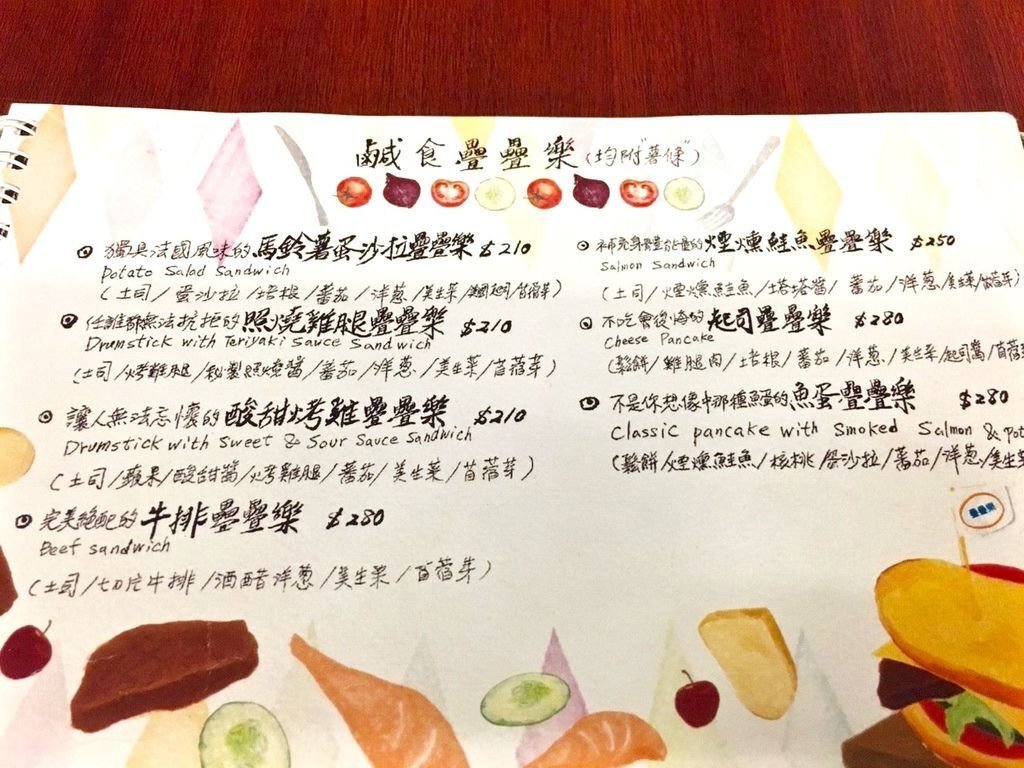 鹹食疊疊樂(均附"薯條")
獨具法國風味的馬鈴薯蛋沙拉疊疊樂 $210
Potato Salad Sandwich
(土司/蛋沙拉/培根/蕃茄/洋蔥/美生菜/苜蓿芽)
任誰都無法抗拒的照燒雞腿疊疊樂 $210
Drumstick with Teriyaki Sauce Sandwich
(土司/烤雞腿/秘製照燒醬/蕃茄/洋蔥/美生菜/苜蓿芽)
讓人無法忘懷的酸甜烤雞疊疊樂 $210
Drumstick with Sweet & Sour Sauce Sandwich
(土司/蘋果/酸甜醬/烤雞腿/蕃茄/美生菜/苜蓿芽)
完美絕配的牛排疊疊樂 $280
Beef sandwich
(土司/切片牛排/酒醋洋蔥/美生菜/苜蓿芽)
補充身體能量的煙燻鮭魚疊疊樂 $250
Salmon Sandwich
(土司/煙燻鮭魚/塔塔醬/蕃茄/洋蔥/美生菜/苜蓿芽)
不吃會後悔的起司疊疊樂 $280
Cheese Pancake
(鬆餅/雞腿肉/培根/蕃茄/洋蔥/美生菜/起司醬/苜蓿
不是你想像中那種魚蛋的魚蛋疊疊樂 $280
Classic pancake with Smoked Salmon & Pot
(鬆餅/煙燻鮭魚/核桃蛋沙拉/蕃茄/洋蔥/美生
疊疊樂